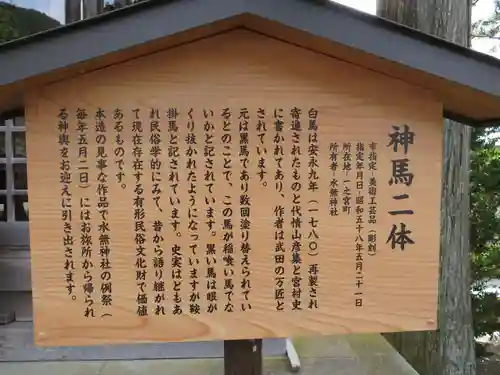 神馬二体
市指定 美術工芸品(彫刻)
指定年月日-昭和五十八年五月二十一
所在地-一之宮町
所有者-水無神社
白馬は安永九年(一七八〇)再製され
寄進されたものと代情山彦集と宮村史
に書かれてあり、作者は武田の万匠と
されています。
元は黒馬であり数回塗り替えられてい
るとのことで、この馬が稲喰い馬でな
いかと記されています。黒い馬は眼が
くり抜かれたようになっていますが鞍
掛馬と記されています。史実はともあ
れ民俗学的にみて、昔から語り継がれ
て現存する有形民俗文化財で価値
あるものです。
本造の見事な作品で水無神社の例祭(
毎年五月二日)にはお旅所から帰られ
る神輿をお迎えに引き出されます。